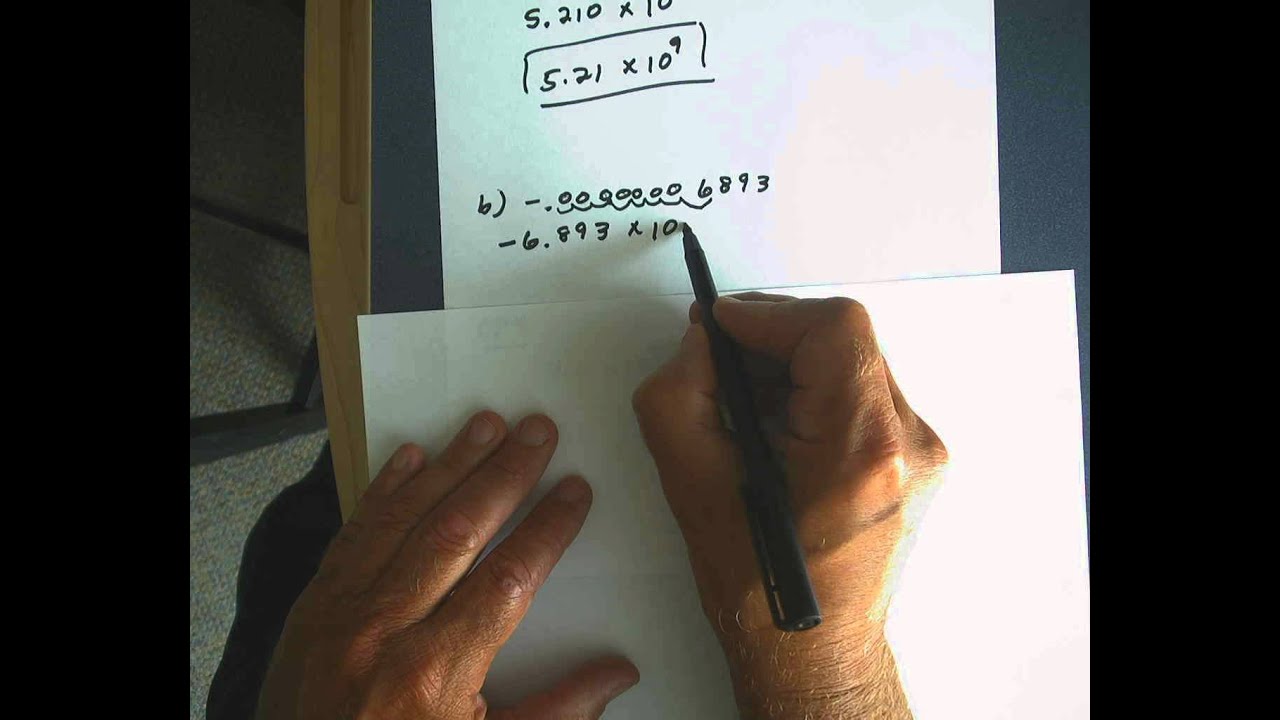 5.210 x 10
5.21 x 10⁹
b) -.0000000 6893
-6.893 x 10